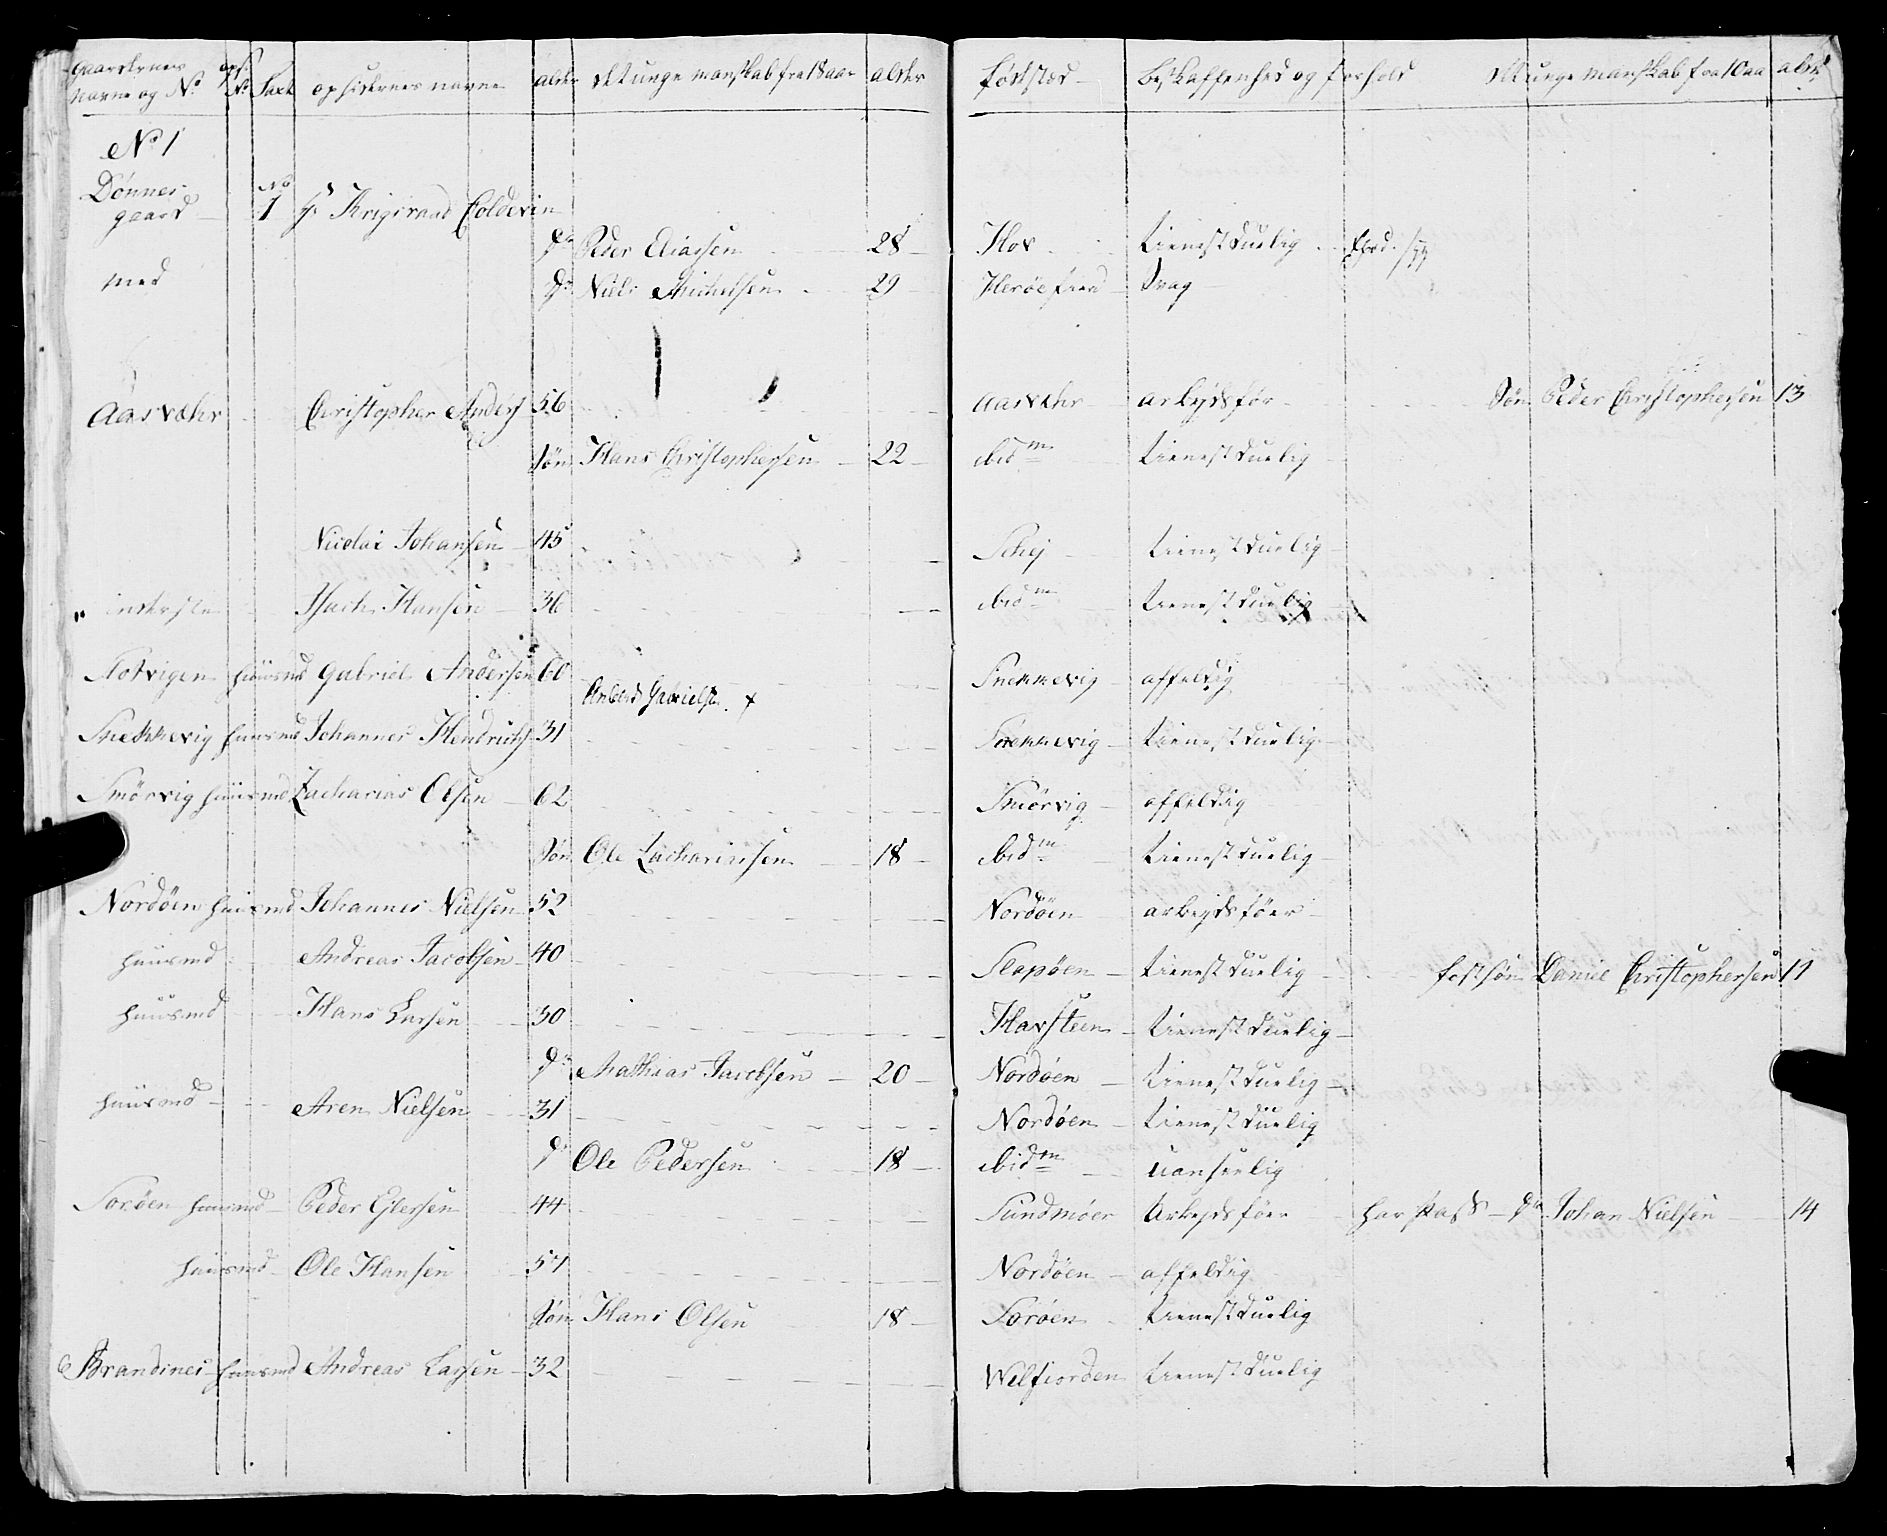 Gaardernes navne og No. | No. | Saxt | opsidernes navne | alder | det unge manskab fra 18 aar | alder | fødsted | beskaffenhed og forhold | det unge manskab fra 10 aa | alder
No 1
Dønnes gaard | No 1 | Hr Krigsraad Coldevin
dr Peder Eliassen | 28 | Hov | tienestduelig
med | dr Niels Michelsen | 29 | Herøefiord | svag
Aasvæhr | Christopher Anders | 56 | Aasvæhr | arbejdsfør | søn Peder Christophersen | 13
søn Hans Christophersen | 22 | ibidm | tienestduelig
Nicolai Johansen | 45 | Schej | tienestduelig
inderste | Isach Hansen | 36 | ibidm | tienestduelig
huusmd Gabriel Andersen | 60 | Gabrielsen x | Snekkevig | affeldig
Snekkevig huusmd Johannes Hendrichs | 31 | Snekkevig | tienestduelig
Smørvig huusmd Zacharias Olsen | 62 | Smørvig | affeldig
søn Ole Zachariasen | 18 | ibidm | tienestduelig
Nordøen huusmd Johannes Nielsen | 52 | Nordøen | arbejdsføer
huusmd | Andreas Jacobsen | 40 | Slapøen | tienestduelig | fostsøn Daniel Christophersen | 11
huusmd | Hans Larsen | 30 | Havsteen | tienestduelig
dr Mathias Jacobsen | 20 | Nordøen | tienestduelig
huusmd | Aren Nielsen | 31 | Nordøen | tienestduelig
dr Ole Pedersen | 18 | ibidm | uanseelig
Sorøen huusmd | Peder Ellersen | 44 | Sundmøer | Arbejdsføer | har pass | dr Johan Nielsen | 14
huusmd | Ole Hansen | 57 | Nordøen | affeldig
søn Hans Olsen | 18 | Sorøen | tienestduelig
Brandsnes huusmd Andreas Larsen | 32 | Welfiorden | tienestduelig